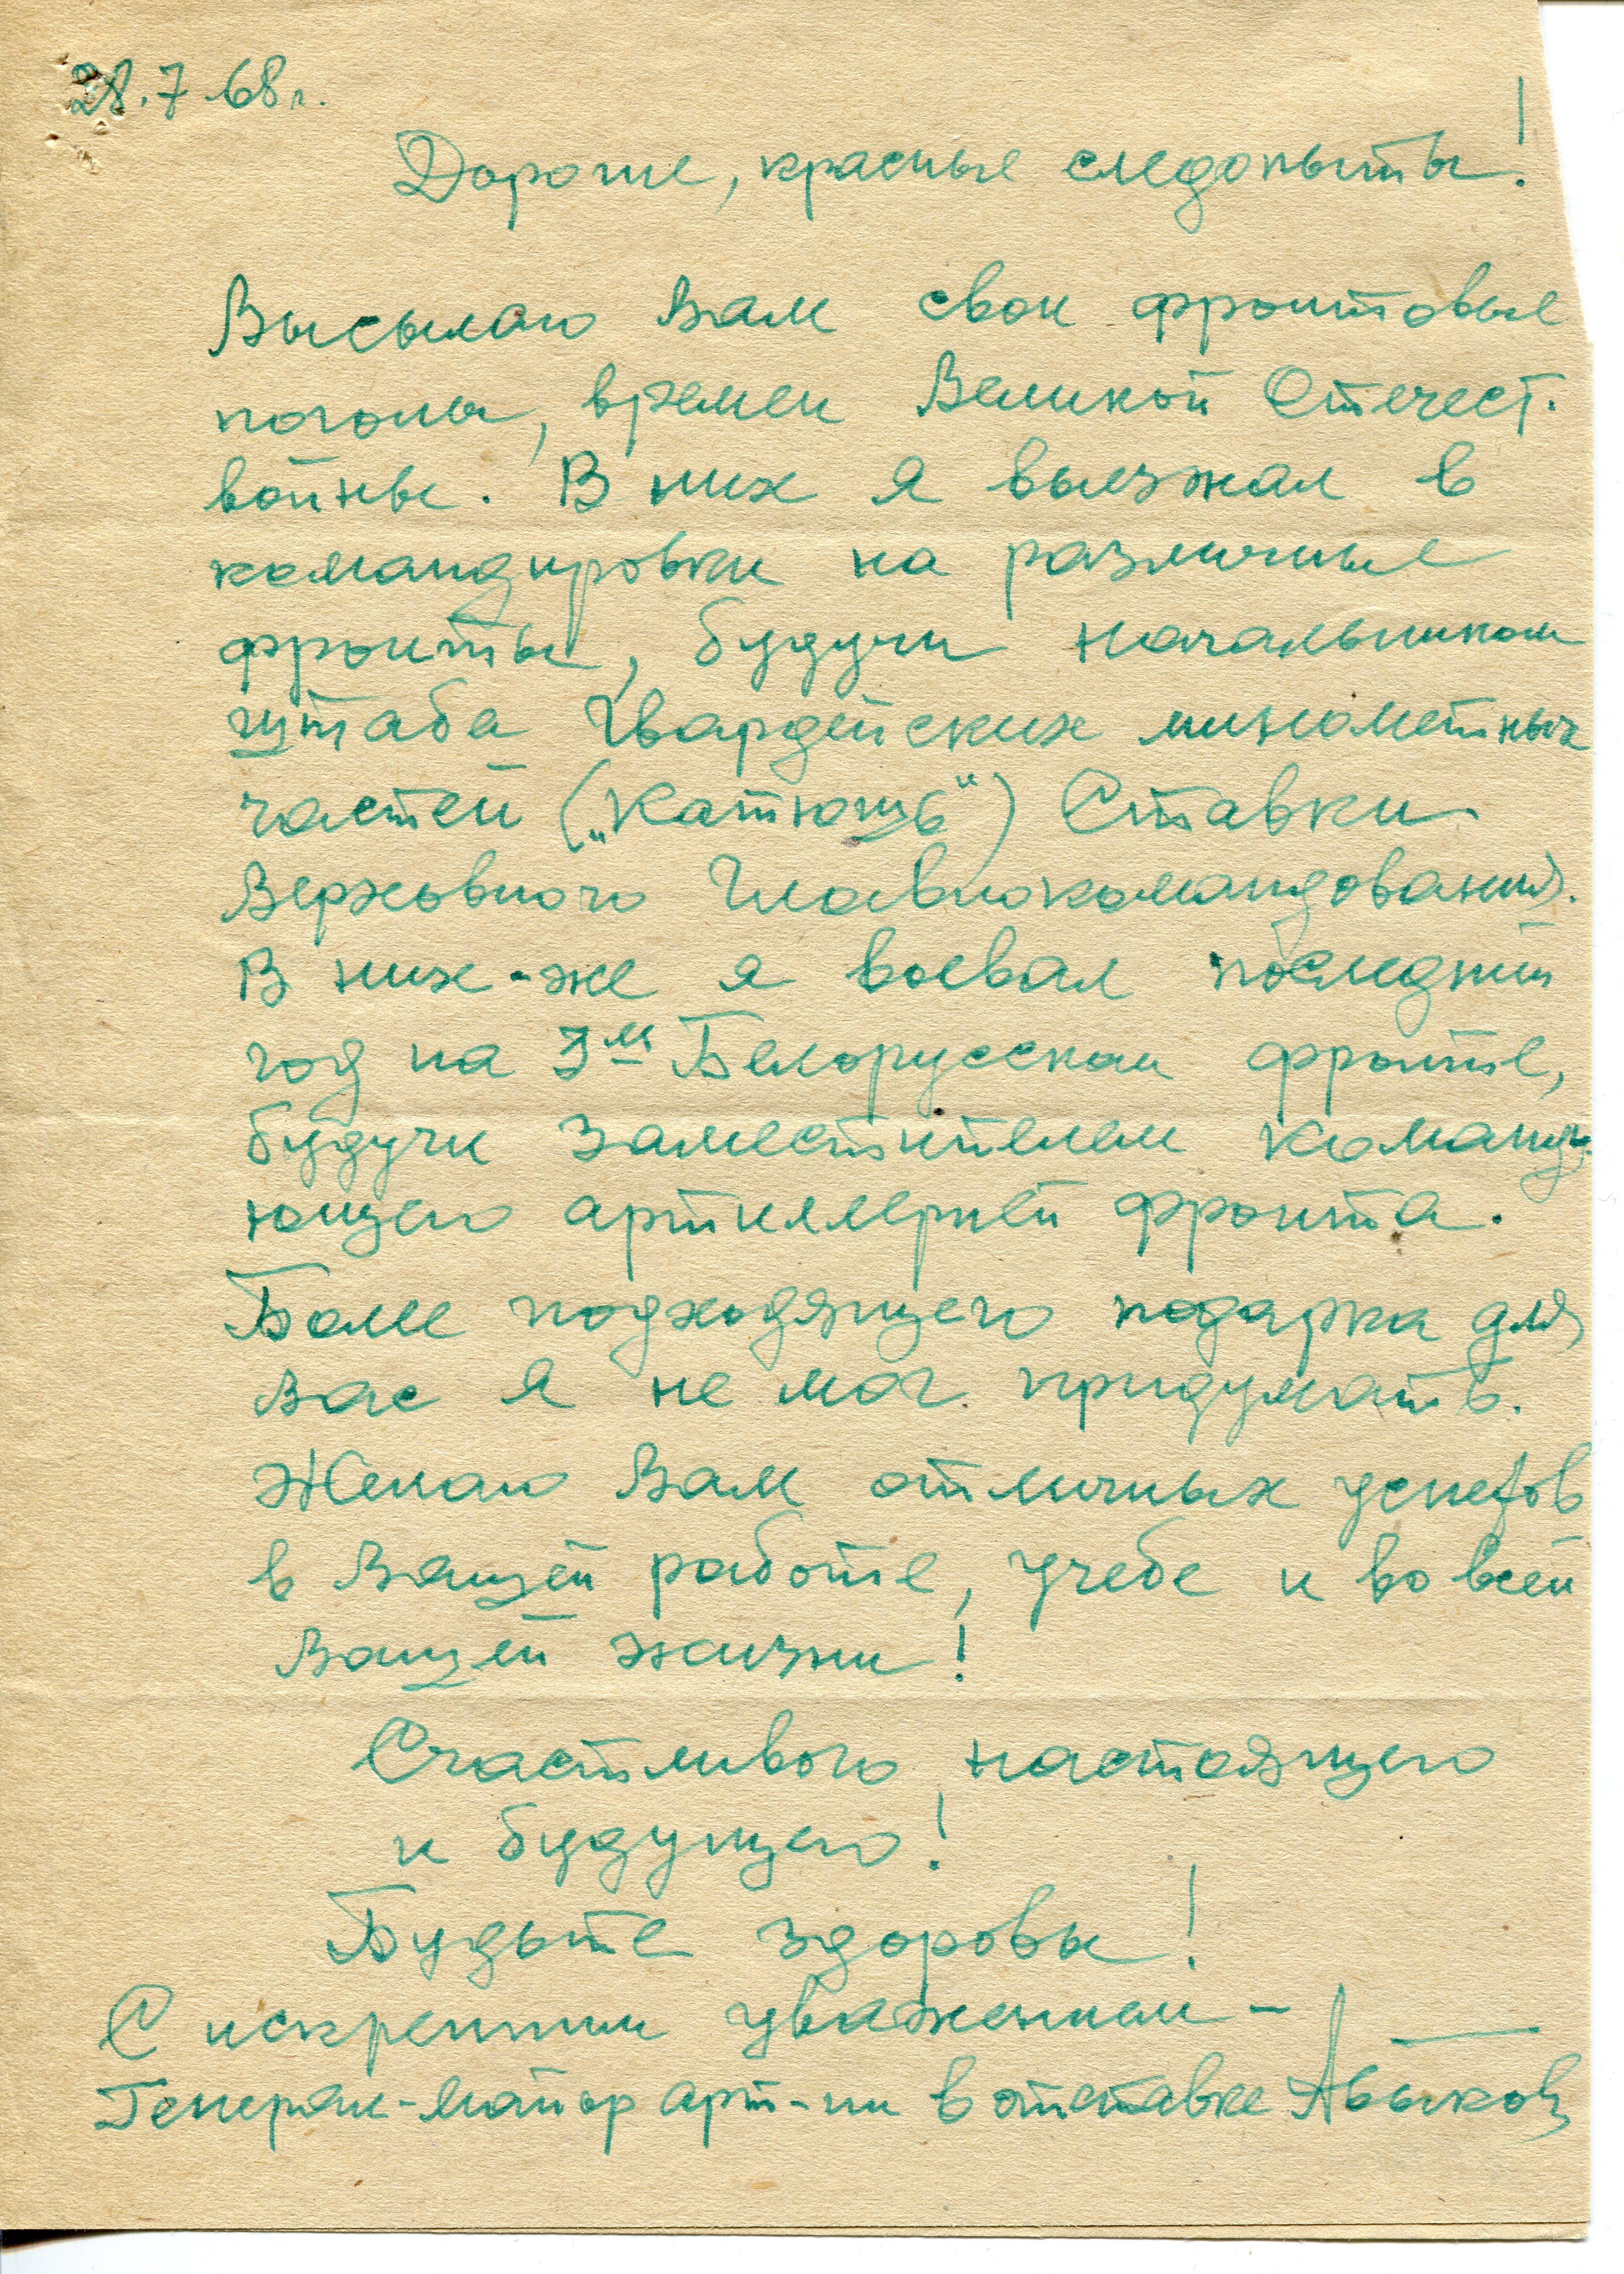 28.7.68г.
Дорогие, красные следопыты!
Высылаю Вам свои фронтовые
погоны, времен Великой Отечест.
войны. В них я выезжал в
командировки на различные
фронты, будучи начальником
штаба Гвардейских минометных
частей („Катюшь“) Ставки
Верховного Главнокомандования.
В них-же я воевал последний
год на 3м Белорусском фронте,
будучи заместителем команду-
ющего артиллерией фронта.
Более подходящего подарка для
Вас я не мог придумать.
Желаю Вам отличных успехов
в Вашей работе, учебе и во всей
Вашей жизни!
Счастливого настоящего
и будущего!
Будьте здоровы!
С искренним уважением –
Генерал-майор арт-ии в отставке